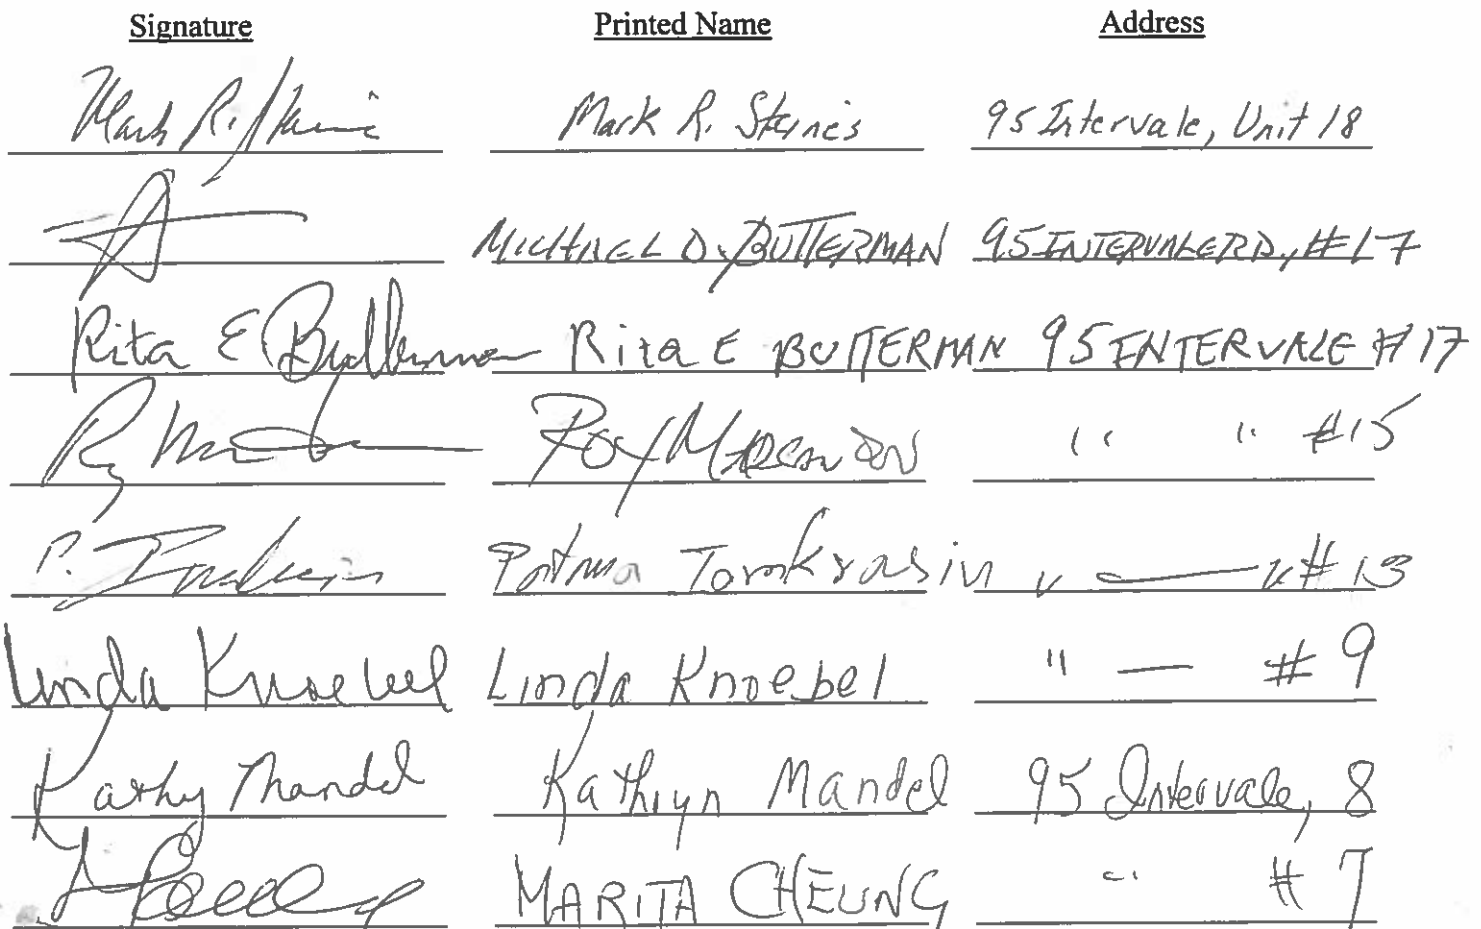 Signature Printed Name Address
Mark R. Mark R. Steines 95 Intervale, Unit 18
MICHAEL D. BUTTERMAN 95 INTERVALE RD., #17
Rita E Butterman Rita E BUTTERMAN 95 INTERVALE #17
Roy " " #15
P. Tomkrasin " — " #13
Linda Knoebel Linda Knoebel " — # 9
Kathy Mandel Kathryn Mandel 95 Intervale, 8
MARITA CHEUNG " # 7